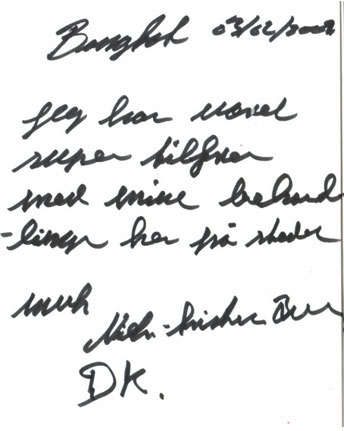 Bangkok 03/02/2002
Jeg har været
super tilfres
med mine behand
-linger her på stedet
mvh
DK.